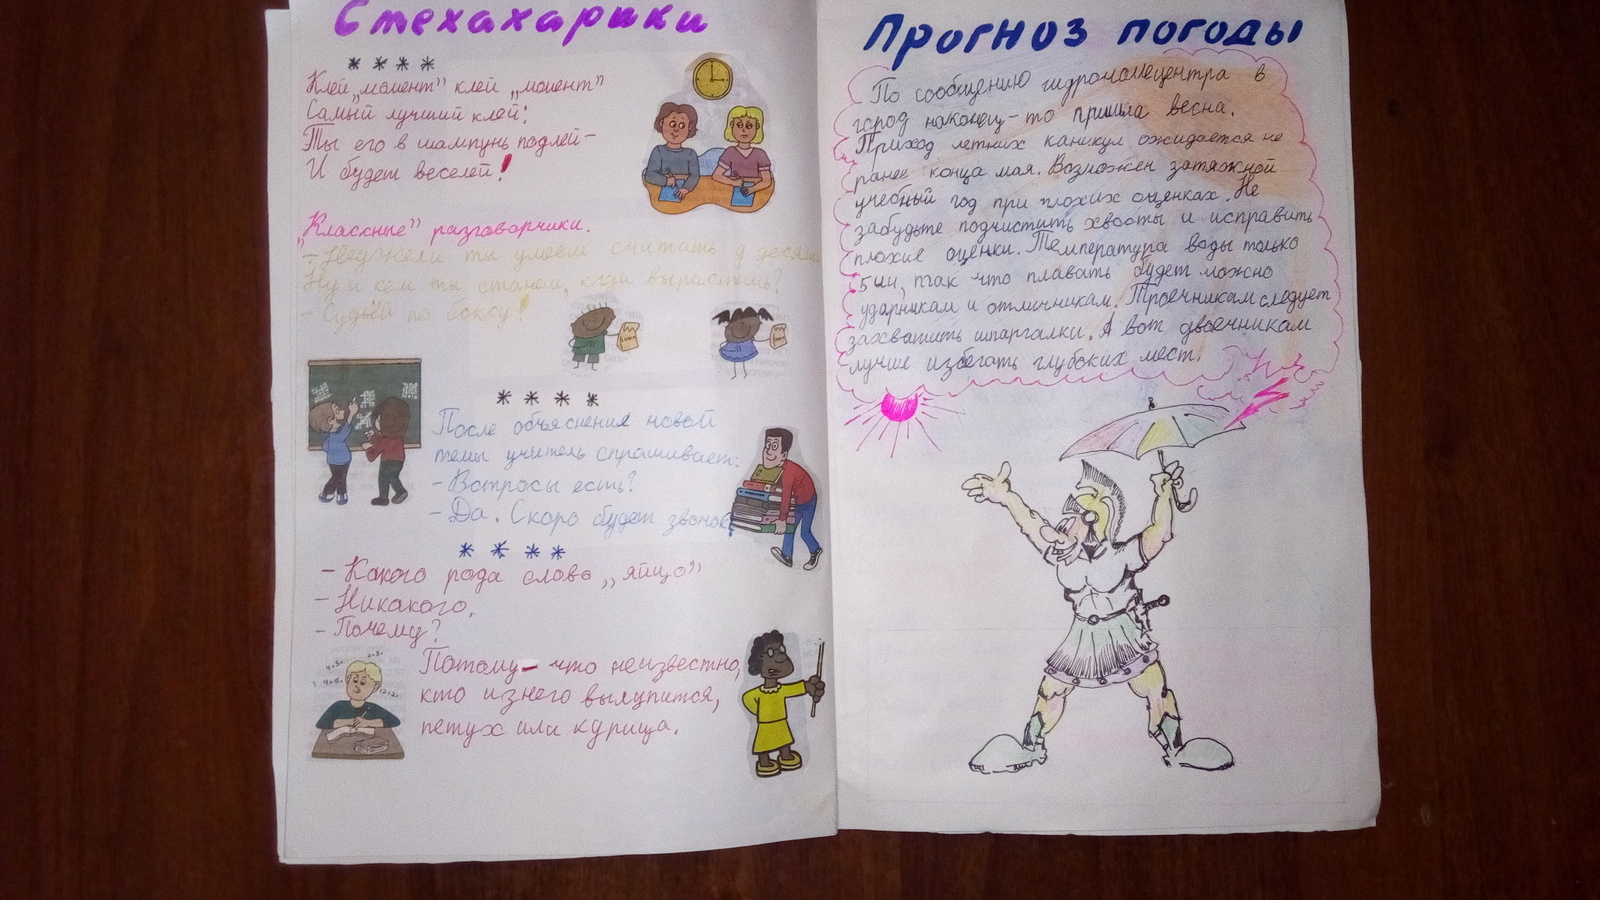 Стехахарики
* * * *
Клей „момент" клей „момент"
Самый лучший клей:
Ты его в шампунь подлей-
И будет веселей!
„Классные" разговорчики.
- Неужели ты умеешь считать д десяти
Ну и кем ты станеш, когда вырастишь?
- Судьёй по боксу!
* * * *
После объяснения новой
темы учитель спрашивает:
- Вопросы есть?
- Да. Скоро будет звонок?
* * * *
- Какого рода слово „яйцо"
- Никакого.
- Почему?
Потому- что неизвестно,
кто из него вылупится,
петух или курица.
Прогноз погоды
По сообщению гидромомецентра в
город наконец-то пришла весна.
Приход летних каникул ожидается не
ранее конца мая. Возможен затяжной
учебный год при плохих оценках. Не
забудьте подчистить хвосты и исправить
плохие оценки. Температура воды только
5ии, так что плавать будет можно
ударникам и отличникам. Троечникам следует
захватить шпаргалки. А вот двоечникам
лучше избегать глубоких мест.